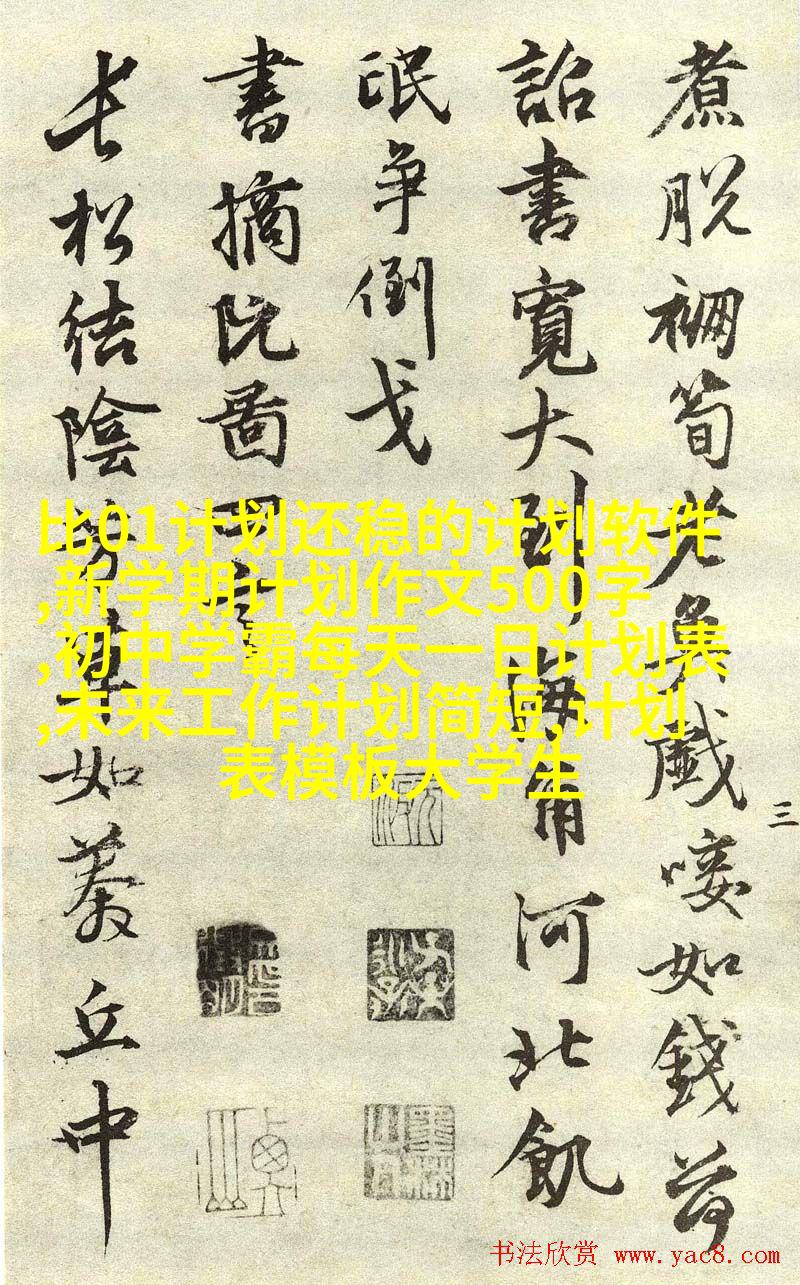 煮脱筍老戲唼如錢荷
詔書寬大到海河北飢
氓争倒戈
書摘阮啚四言
長松结陰如丘中
三
比01计划还稳的计划软件
,新学期计划作文500字
,初中学霸每天一日计划表
,未来工作计划简短,计划
表模板大学生
书法欣赏 www.yac8.com